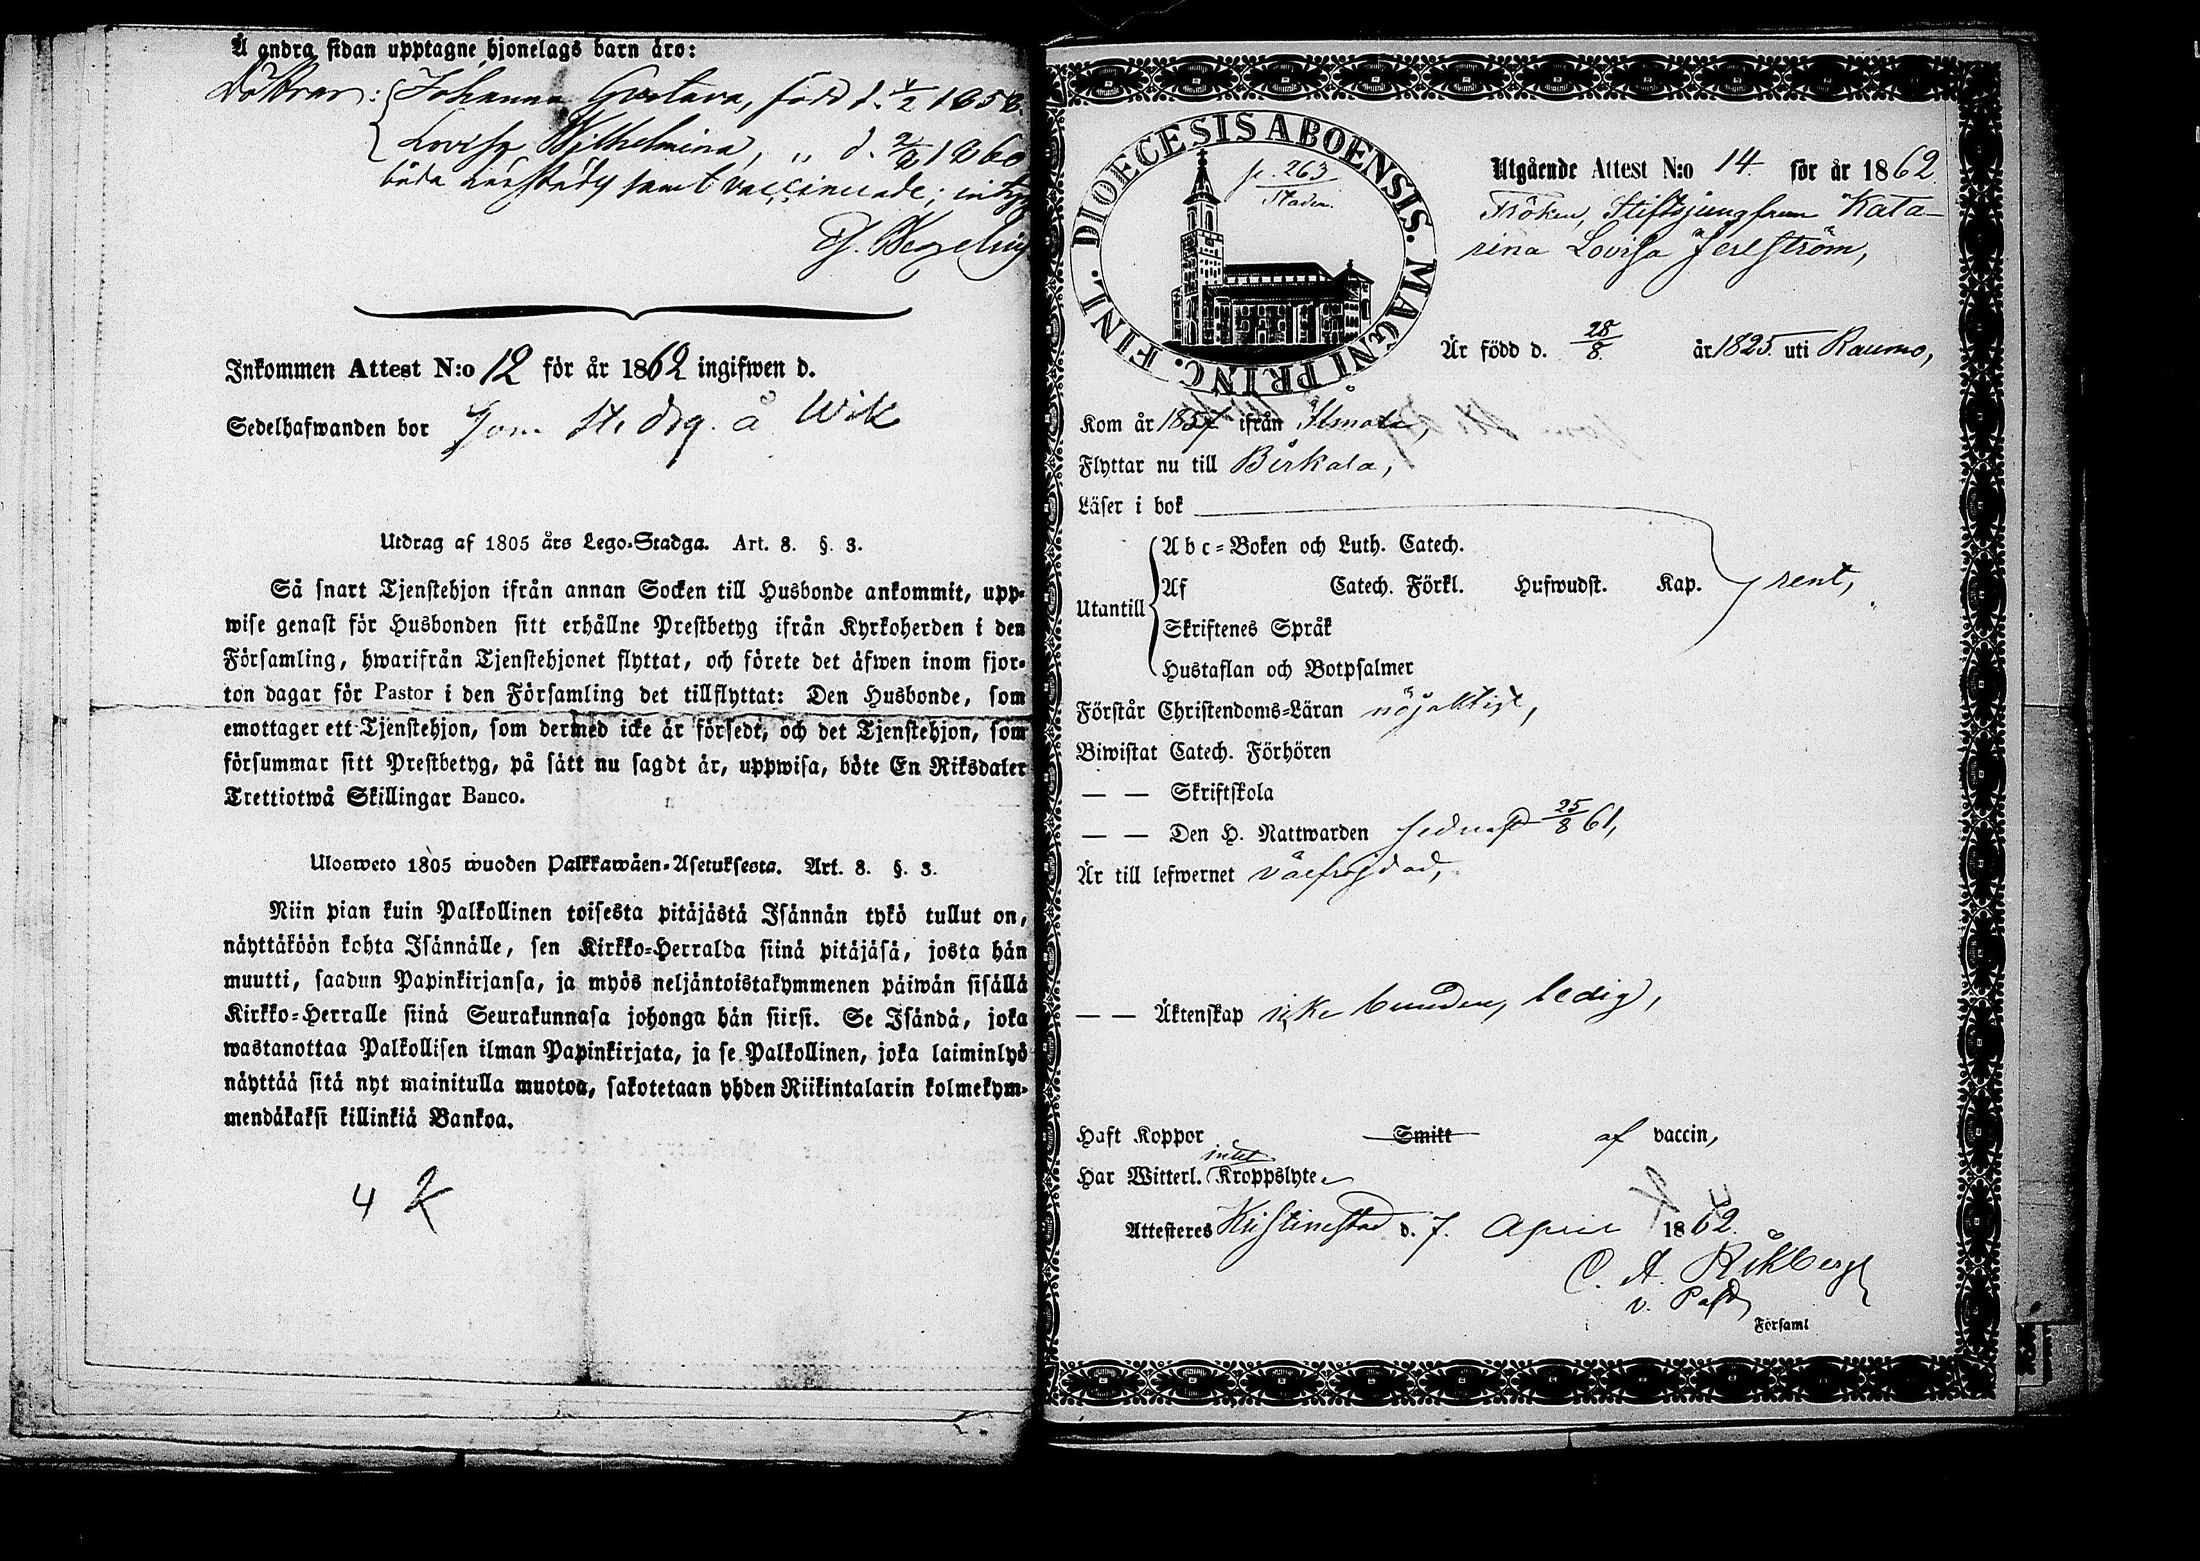 Å andra sidan upptagne hjonelags barn äro:
Döttrar: Johanna Gustava, född d. 4/2 1858.
Lovisa Wilhelmina, " d. 2/2 1860
båda samt vaccinerade;
Inkommen Attest N:o 12 för år 1862 ingifwen d.
Sedelhafwanden bor å Wik
Utdrag af 1805 års Lego-Stadga. Art. 8. §. 3.
Så snart Tjenstehjon ifrån annan Socken till Husbonde ankommit, upp-
wise genast för Husbonden sitt erhållne Prestbetyg ifrån Kyrkoherden i den
Församling, hwarifrån Tjenstehjonet flyttat, och förete det äfwen inom fjor-
ton dagar för Pastor i den Församling det tillflyttat: Den Husbonde, som
emottager ett Tjenstehjon, som dermed icke är försedt, och det Tjenstehjon, som
försummar sitt Prestbetyg, på sätt nu sagdt är, uppwisa, böte En Riksdaler
Trettiotwå Skillingar Banco.
Ulosweto 1805 wuoden Palkkawäen-Asetuksesta. Art. 8. §. 3.
Niin pian kuin Palkollinen toisesta pitäjästä Isännän tykö tullut on,
näyttäköön kohta Isännälle, sen Kirkko-Herralda siinä pitäjäsä, josta hän
muutti, saadun Papinkirjansa, ja myös neljäntoistakymmenen päiwän sisällä
Kirkko-Herralle siinä Seurakunnasa johonga hän siirsi. Se Isändä, joka
wastanottaa Palkollisen ilman Papinkirjata, ja se Palkollinen, joka laiminlyö
näyttää sitä nyt mainitulla muotoa, sakotetaan yhden Riikintalarin kolmekym-
mendäkaksi killinkiä Bankoa.
4 K
FINL. DIOECESIS ABOENSIS. MAGNI PRINC.
p. 263
Staden.
Utgående Attest N:o 14. för år 1862.
Fröken, Stiftsjungfrun Kata-
rina Lovisa Jerlström,
Är född d. 28/8 år 1825. uti Raumo,
Kom år 1857 ifrån Ilmola,
Flyttar nu till Birkala,
Läser i bok
Utantill
Abc-Boken och Luth. Catech.
Af Catech. Förkl. Hufwudst. Kap. rent,
Skriftenes Språk
Hustaflan och Botpsalmer
Förstår Christendoms-Läran nöjaktigt,
Biwistat Catech. Förhören
— — Skriftskola
— — Den H. Nattwarden sednast 25/8 61,
Är till lefwernet välfrejdad,
— — Äktenskap icke bunden, ledig,
Haft Koppor Smitt af vaccin,
Har Witterl. intet Kroppslyte
Attesteres Kristinestad d. 7. April 1862.
C. A. Åkberg
v. Past
Församl